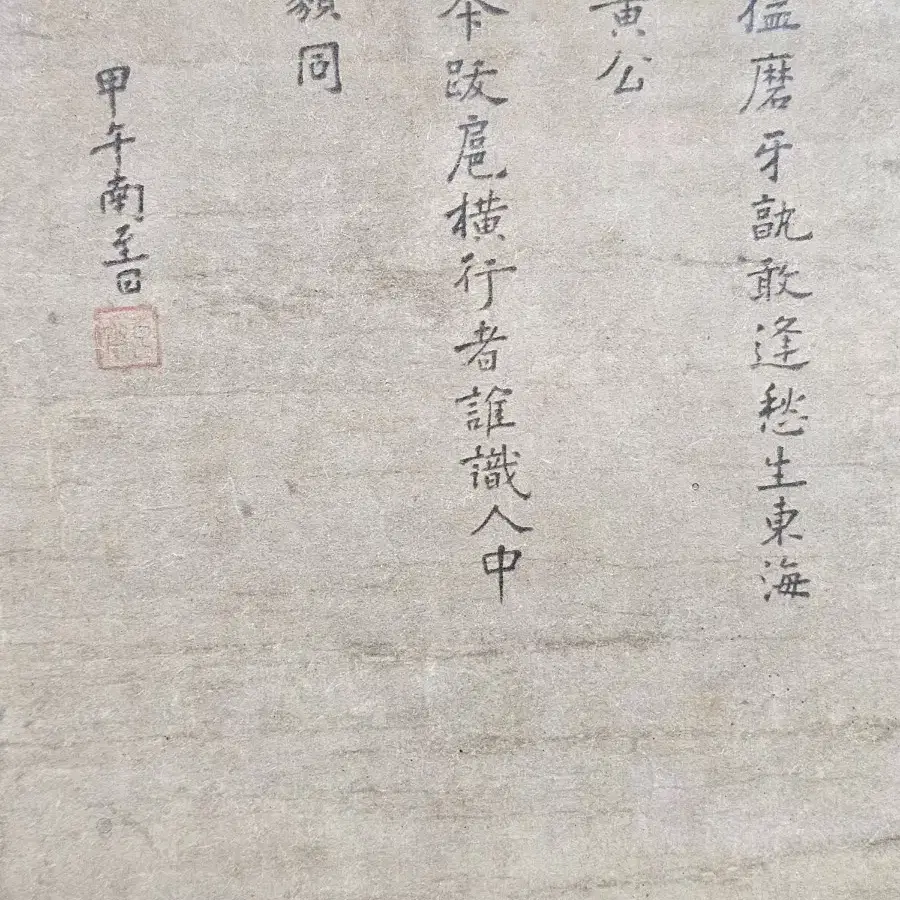 猛磨牙孰敢逢愁生東海
黃公
跋扈橫行者誰識人中
類同
甲午南至日